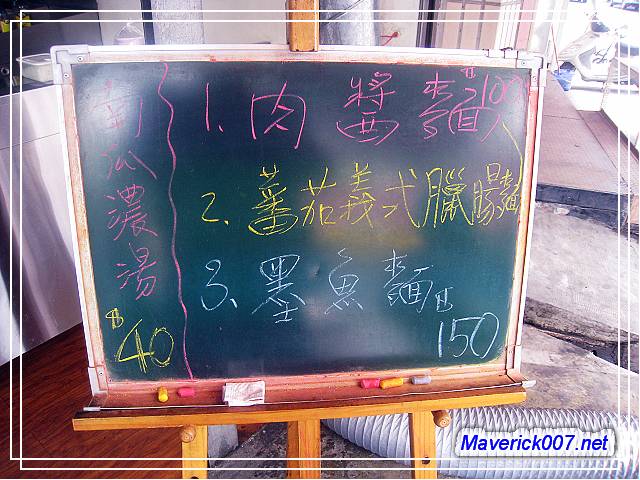 南瓜濃湯
$40
1. 肉醬麵 $100
2. 蕃茄義式臘腸麵
3. 墨魚麵 $150
Maverick007.net